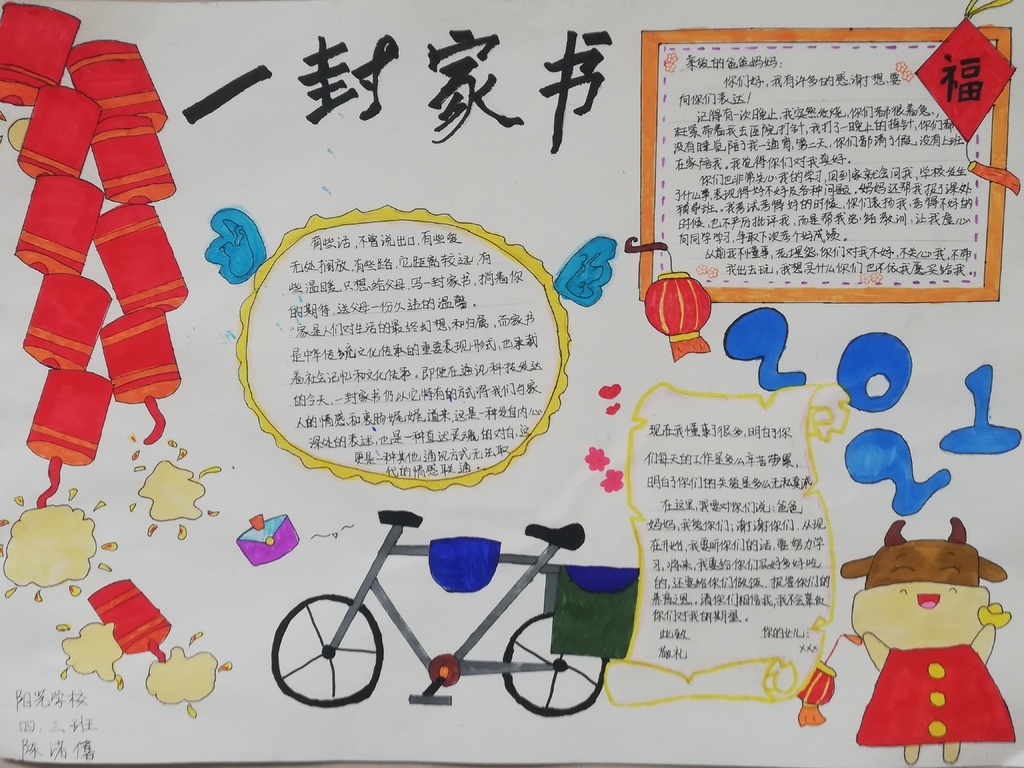 一封家书
福
亲爱的爸爸妈妈：
你们好，我有许多的感谢想要
向你们表达！
记得有一次晚上，我突然发烧，你们都很着急，
赶紧带着我去医院打针，我打了一晚上的掉针，你们都
没有睡觉，陪了我一通宵，第二天，你们都请了假，没有上班
在家陪我，我觉得你们对我真好。
你们也非常关心我的学习，回到家就会问我，学校发生
了什么事，表现得好不好及各种问题。妈妈还帮我报了课外
辅导班。我考试考得好的时候，你们表扬我，考得不好的
时候，也不严厉批评我，而是帮我总结教训，让我虚心
向同学学习，争取下次考个好成绩。
从前我不懂事，总埋怨你们对我不好，不关心我，不带
我出去玩，我想买什么你们也不依我愿买给我。
有些话，不曾说出口，有些爱
无处搁放，有些路，它距离较远，有
些温暖，只想给父母，写一封家书，捎着你
的期待，送父母一份久违的温馨。
家是人们对生活的最终幻想和归属，而家书
是中华传统文化传承的重要表现形式，也承载
着社会记忆和文化传承。即便在通讯科技发达
的今天，一封家书仍以它特有的方式将我们与家
人的情感和衷肠娓娓道来，这是一种发自内心
深处的表达，也是一种直达灵魂的对白，这
更是一种其他通讯方式无法取
代的情感联通。
2021
现在我懂事了很多，明白了你
们每天的工作是多么辛苦劳累，
明白了你们的关爱是多么无私真诚
在这里，我要对你们说：爸爸
妈妈，我爱你们；谢谢你们，从现
在开始，我要听你们的话，要努力学
习，将来，我要给你们买好多好吃
的，还要给你们做饭，报答你们的
养育之恩。请你们相信我，我不会辜负
你们对我的期望。
此致 你的女儿：
敬礼 XXX
阳光学校
四.三班
陈诺僖